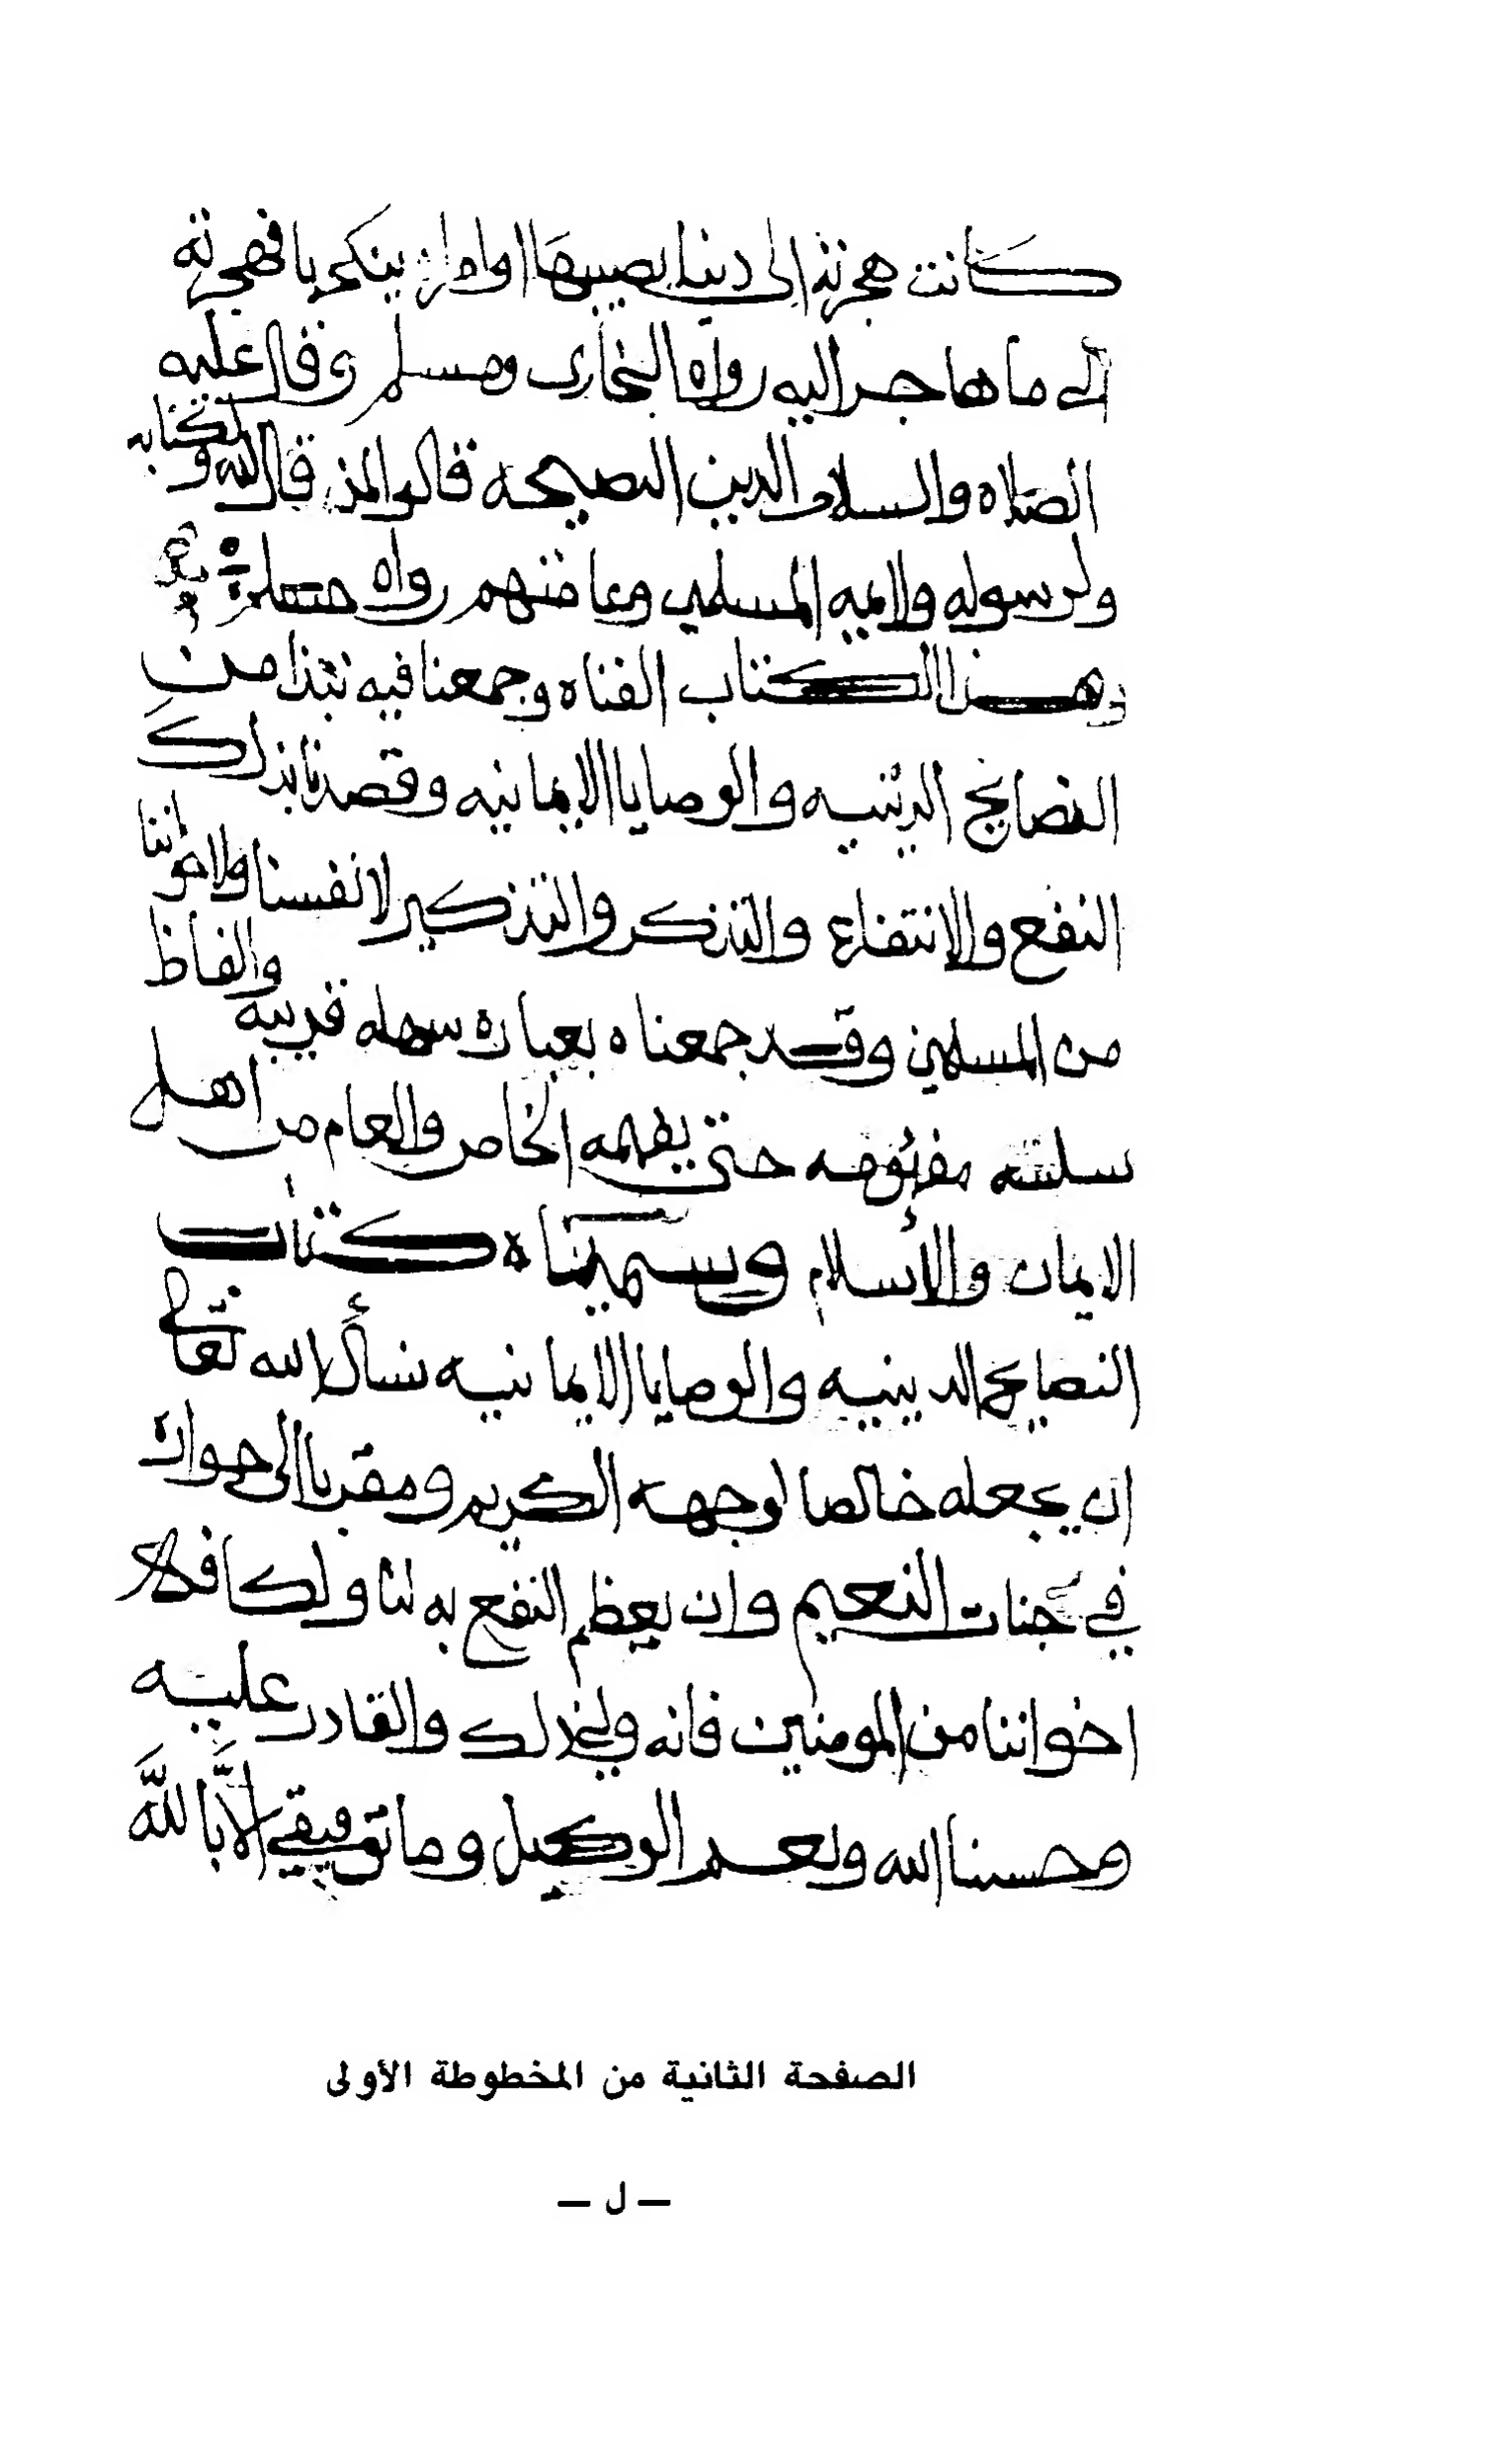 كانت هجرته الى دنيا يصيبها او امراة ينكحها فهجرته
الى ما هاجر اليه رواه البخارى ومسلم وقال عليه
الصلاه والسلام الدين النصيحه قالوا لمن قال لله ولكتابه
ولرسوله ولايمه المسلمين وعامتهم رواه مسلم
وهذا الكتاب الفناه وجمعنا فيه نبذا من
النصايح الدينيه والوصايا الايمانيه وقصدنا بذلك
النفع والانتفاع والتذكر والتذكير لانفسنا ولاخواننا
من المسلمين وقد جمعناه بعباره سهله قريبه والفاظ
سلسه مفهومه حتى يفهمه الخاص والعام من اهل
الايمان والأسلام وسميناه كتاب
النصايح الدينيه والوصايا الايمانيه نسأل الله تعالى
ان يجعله خالصا لوجهه الكريم ومقربا الى جواره
في جنات النعيم وان يعظم النفع به لنا ولكافة
اخواننا من المومنين فانه ولي ذلك والقادر عليه
وحسبنا الله ونعم الوكيل وما توفيقي الَّا بالله
الصفحة الثانية من المخطوطة الأولى
— ل —